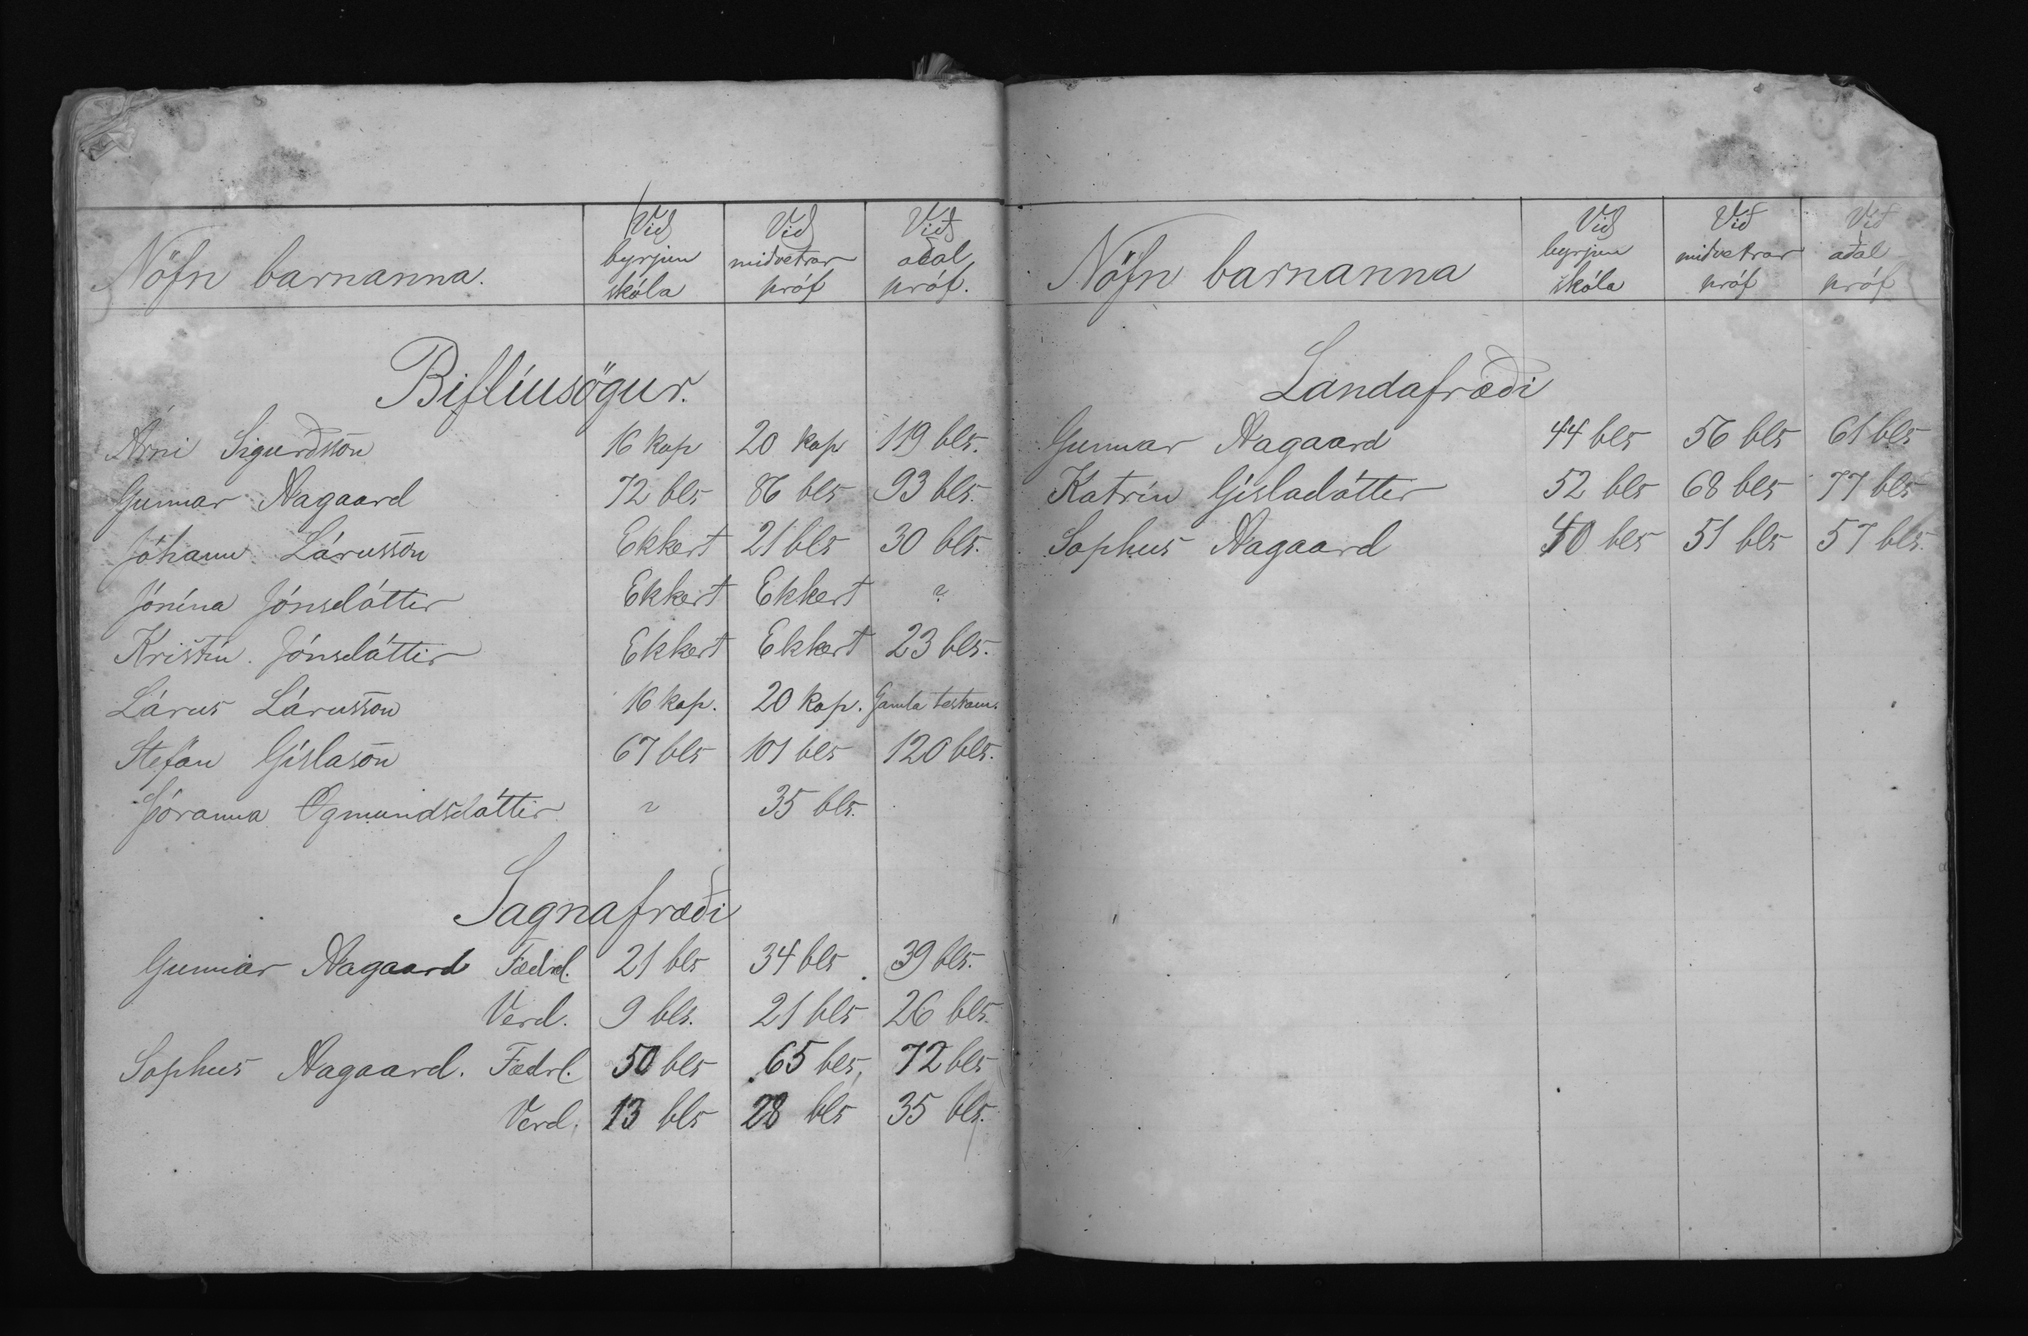 Nöfn barnanna. Við byrjun skóla Við miðvetrar próf Við aðal próf.
Biflíusögur.
Árni Sigurðsson 16 kap 20 kap 119 bls.
Gunnar Aagaard 72 bls 86 bls 93 bls.
Jóhann Lárusson Ekkert 21 bls 30 bls.
Jónína Jónsdóttir Ekkert Ekkert ?
Kristín Jónsdóttir Ekkert Ekkert 23 bls.
Lárus Lárusson 16 kap. 20 kap. Gamla testam.
Stefán Gíslason 67 bls 101 bls 120 bls.
Þóranna Ögmundsdóttir ~ 35 bls.
Sagnafræði
Gunnar Aagaard Fædrl. 21 bls 34 bls 39 bls.
Verd. 9 bls. 21 bls 26 bls.
Sophus Aagaard. Fædrl. 50 bls 65 bls. 72 bls
Verd. 13 bls 28 bls 35 bls.
Nöfn barnanna Við byrjun skóla Við miðvetrar próf Við aðal próf
Landafræði
Gunnar Aagaard 44 bls 56 bls 61 bls
Katrín Gísladóttir 52 bls 68 bls 77 bls
Sophus Aagaard 40 bls 51 bls 57 bls.